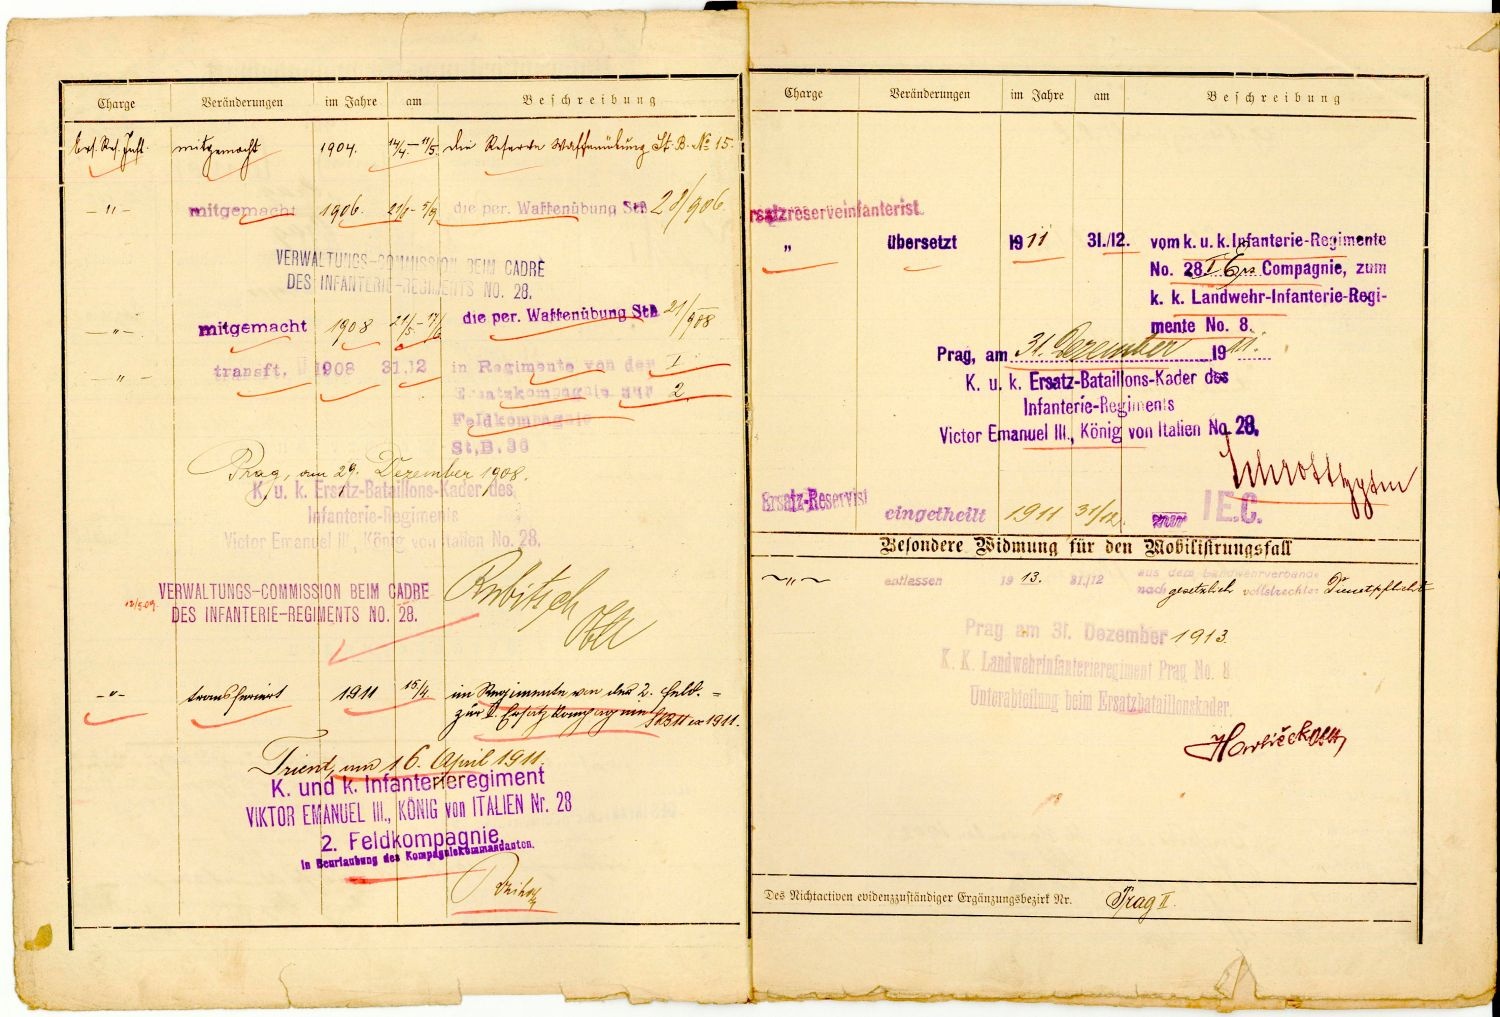 Charge Veränderungen im Jahre am Beschreibung
Ers. Res. Inft. mitgemacht 1904. 14/4.–11/5. die Reserve Waffenübung St. B. No 15.
–"– mitgemacht 1906. 5/9 die per. Waffenübung StB 28/906.
VERWALTUNGS-COMMISSION BEIM CADRE
DES INFANTERIE-REGIMENTS NO. 28.
–"– mitgemacht 1908 21/5.– die per. Waffenübung StB 21/908
–"– transft. 1908 31.12 in Regimente von der I
Ersatzkompagnie zur 2.
Feldkompagnie
St.B. 36
Prag, am 29. Dezember 1908.
K. u. k. Ersatz-Bataillons-Kader des
Infanterie-Regiments
Victor Emanuel III., König von Italien No. 28.
VERWALTUNGS-COMMISSION BEIM CADRE
DES INFANTERIE-REGIMENTS NO. 28.
Rubitsch
Oblt
–"– transferiert 1911 15/4. im Regimente von der 2. Feld-
zur I. Ersatzkompagnie 1911.
Trient, am 16. April 1911.
K. und k. Infanterieregiment
VIKTOR EMANUEL III., KÖNIG von ITALIEN Nr. 28
2. Feldkompagnie.
in Beurlaubung des Kompagniekommandanten.
Charge Veränderungen im Jahre am Beschreibung
Ersatzreserveinfanterist.
" übersetzt 1911 31./12. vom k. u. k. Infanterie-Regimente
No. 28 I Ers Compagnie, zum
k. k. Landwehr-Infanterie-Regi-
mente No. 8.
Prag, am 31. Dezember 1911.
K. u. k. Ersatz-Bataillons-Kader des
Infanterie-Regiments
Victor Emanuel III., König von Italien No. 28.
Ersatz-Reservist eingetheilt 1911 31/12. zur I E.C.
Besondere Widmung für den Mobilisirungsfall
~"~ entlassen 1913. 31/12 aus dem Landwehrverbande
nach gesetzlich vollstreckter Dienstpflicht
Prag am 31. Dezember 1913.
K. K. Landwehrinfanterieregiment Prag No. 8
Unterabteilung beim Ersatzbataillonskader.
Havlíček Oblt,
Des Nichtactiven evidenzzuständiger Ergänzungsbezirk Nr. Prag II.